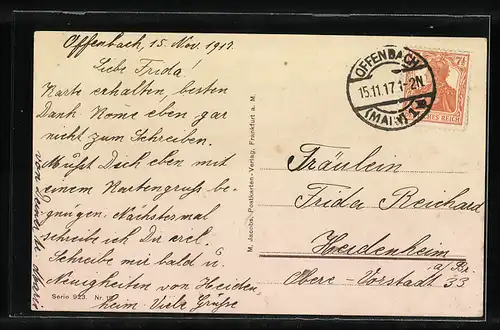 Offenbach, 15. Nov. 1917.
Liebe Frida!
Karte erhalten, besten
Dank. Komme eben gar
nicht zum Schreiben.
Mußt Dich eben mit
einem Kartengruss be-
gnügen. Nächstesmal
schreibe ich Dir viel.
Schreibe mir bald u.
Neuigkeiten von Heiden,
heim. Viele Grüße
von Deiner
Serie 923. Nr.
M. Jacobs, Postkarten-Verlag, Frankfurt a. M.
OFFENBACH
15.11.17 1-2N
(MAIN) 1
7½
REICH
Fräulein
Frida Reichard
Heidenheim
a/Br.
Obere-Vorstadt 33